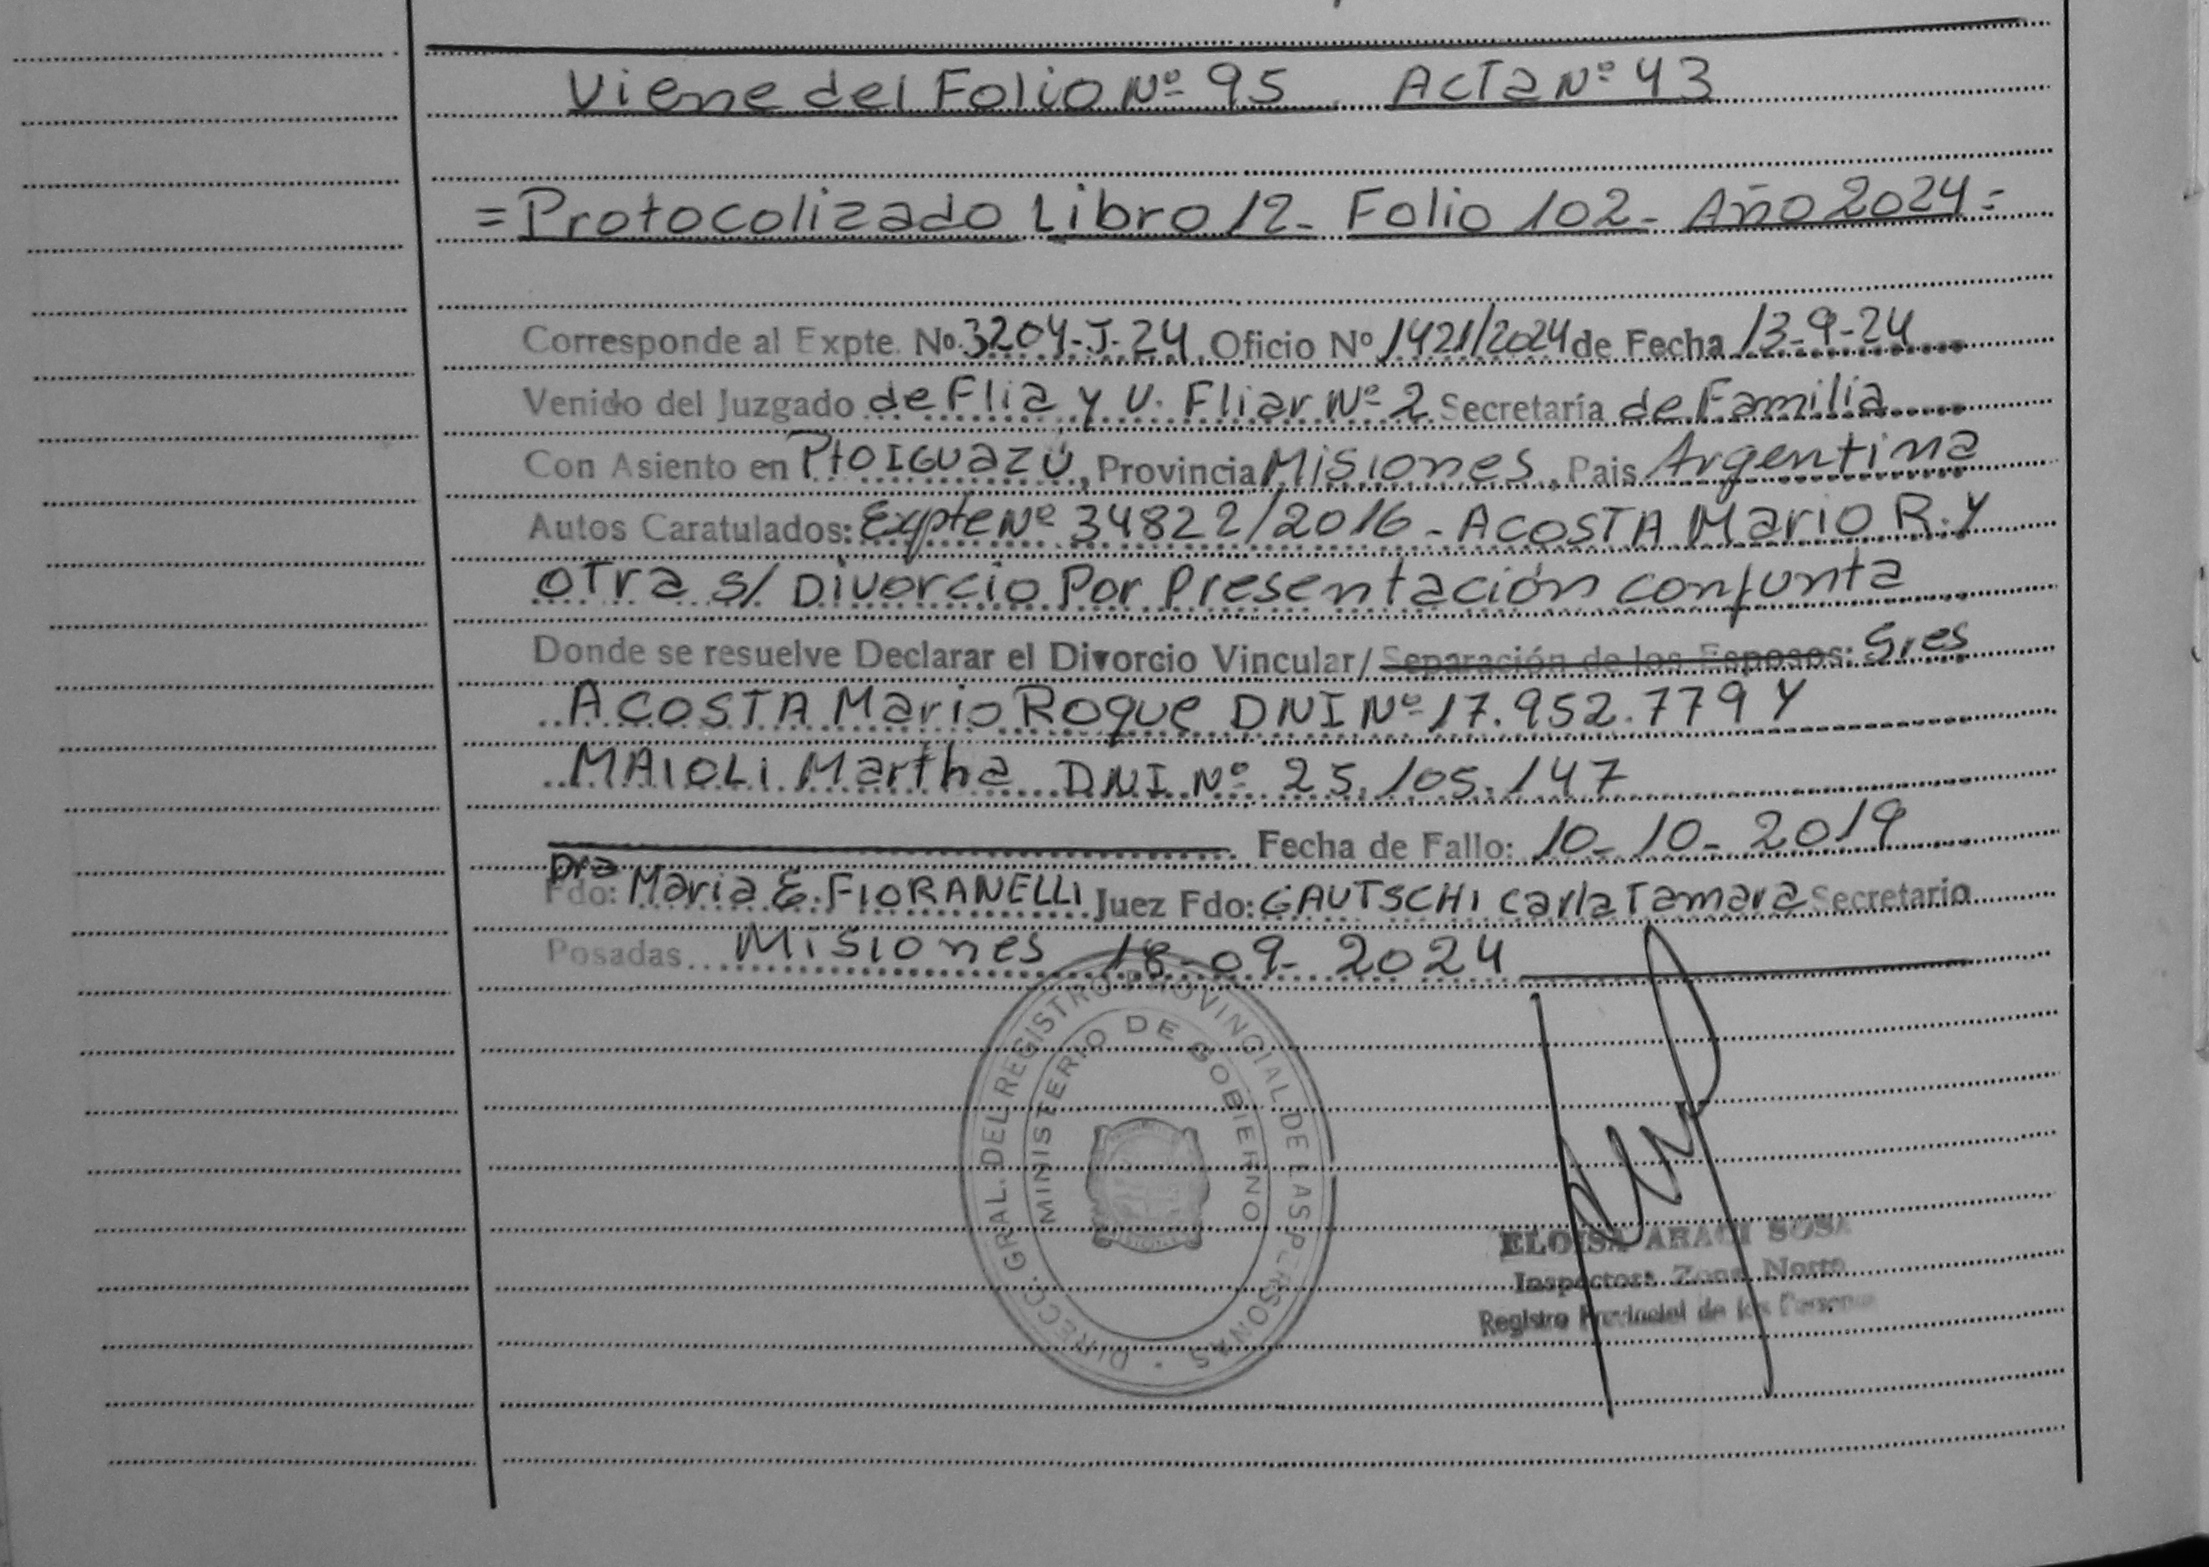 Viene del Folio Nº 95 Acta Nº 43
= Protocolizado Libro 12- Folio 102- Año 2024 =
Corresponde al Expte. No. 3204-J-24 Oficio Nº 1421/2024 de Fecha 13-9-24
Venido del Juzgado de Flia y V. Fliar Nº 2 Secretaría de Familia
Con Asiento en Pto Iguazú, Provincia Misiones, Pais Argentina
Autos Caratulados: Expte Nº 34822/2016 - ACOSTA Mario R. y
otra s/ Divorcio Por Presentación conjunta
Donde se resuelve Declarar el Divorcio Vincular/ Separación de los Esposos: Sres
ACOSTA Mario Roque DNI Nº 17.952.779 Y
MAIOLI Martha DNI Nº 25.105.147
Fecha de Fallo: 10-10-2019
Dra
Fdo: Maria E. FIORANELLI Juez Fdo: GAUTSCHI Carla Tamara Secretario
Posadas Misiones 18-09-2024
DIRECC. GRAL. DEL REGISTRO PROVINCIAL DE LAS PERSONAS
MINISTERIO DE GOBIERNO
ELOISA ARACI SOSA
Inspectora Zona Norte
Registro Provincial de las Personas